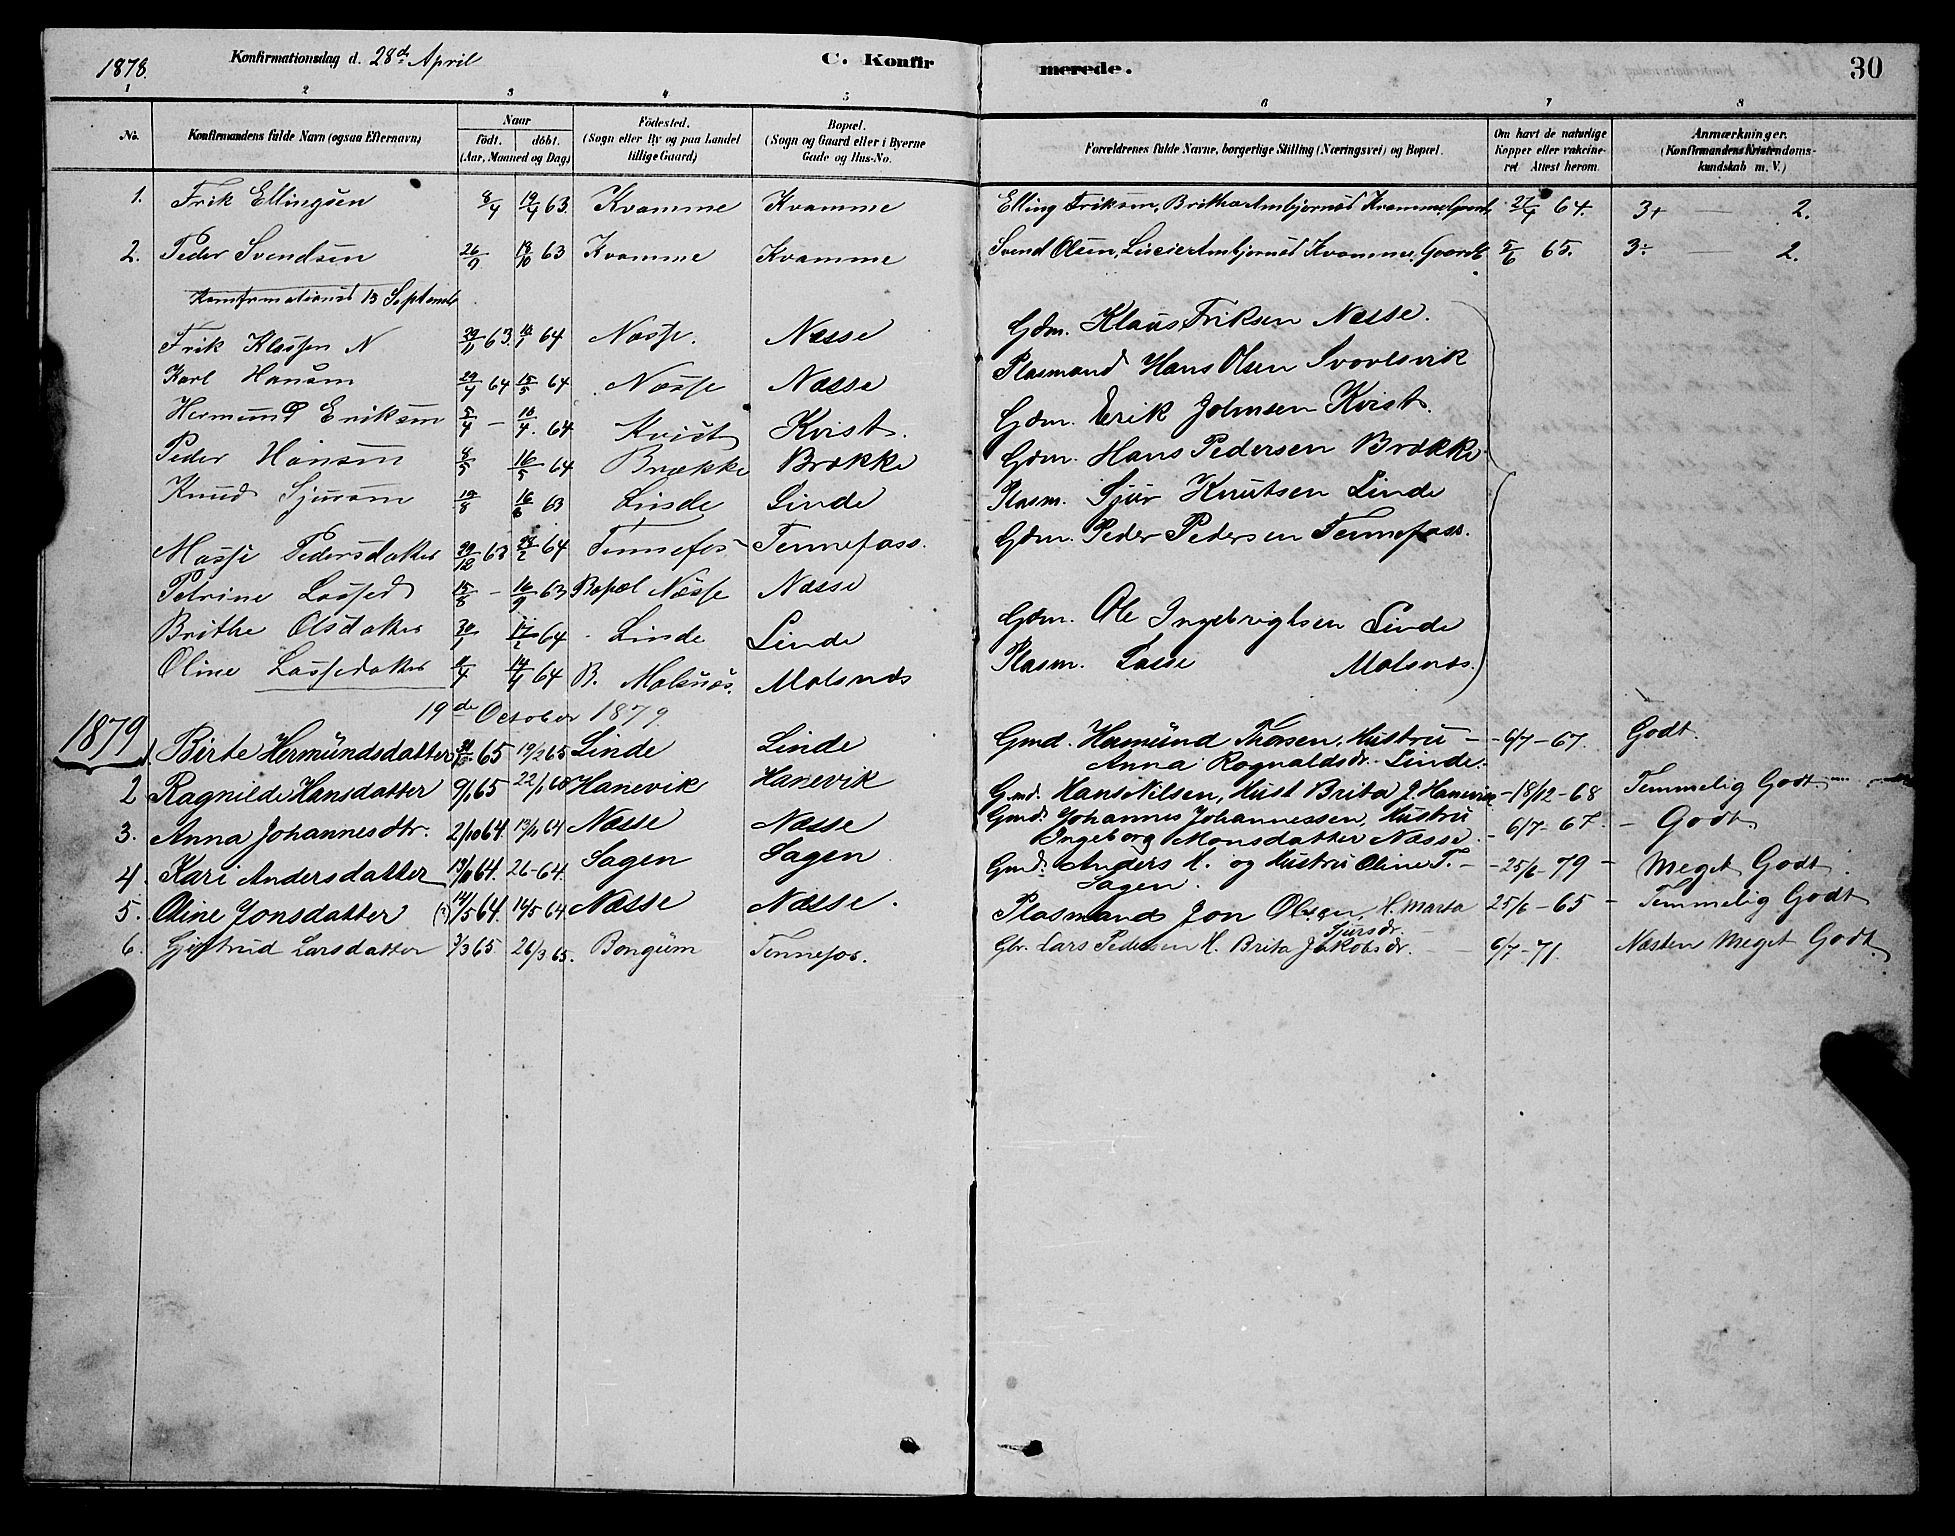 1878. Konfirmationsdag d. 28de April C. Konfir merede. 30
1 2 3 4 5 6 7 8
No. Konfirmandens fulde Navn (ogsaa Efternavn) Naar født. døbt. (Aar, Maaned og Dag) Fødested. (Sogn eller By og paa Landet tillige Gaard) Bopæl. (Sogn og Gaard eller i Byerne Gade og Hus-No. Forældrenes fulde Navne, borgerlige Stilling (Næringsvei) og Bopæl. Om havt de naturlige Kopper eller vakcineret Attest herom. Anmærkninger. (Konfirmandens Kristendomskundskab m. V.)
1. Erik Ellingsen 8/4 19/4 63. Kvamme Kvamme Elling Eriksen, Britha Kvamme 64. 3+ — 2.
2. Peder Svendsen 26/9 18/10 63 Kvamme Kvamme Svend Olsen, Kvamme 5/6 65. 3÷ — 2.
13 September
Erik Klassen N 63. 64 Næsse. Næsse Gdm. Klaus Eriksen Næsse.
Karl Hansen 29/4 64 15/5 64 Næsse Næsse Plasmand Hans Olsen
Hermund Eriksen 5/4 — 10/4. 64 Kvist Kvist. Gdm. Erik Johnsen Kvist.
Peder Hansen 8/5 16/5 64 Brække Brække Gdm. Hans Pedersen Brække
Knud Sjursen 19/8 63 Linde Linde Plasm. Sjur Knutsen Linde
Pedersdatter 29/12 63 64 Tennefos Tennefoss. Gdm. Peder Pedersen Tennefoss.
Petrine Lassed 15/8 — 16/9 63 Bopæl Næsse Næsse
Brithe Olsdatter 30/1 17/2 64 Linde Linde Gdm. Ole Ingebrigtsen Linde
Oline Lassedatter 64 B. Molsnæs. Molsnæs Plasm. Lasse Molsnæs.
19de October 1879
1879
1. Birte Hermundsdatter 65 19/2 65 Linde Linde Gmd. Hermund Thorsen, Hustru — — 6/7 — 67. Godt.
Anna Rognaldsdr. Linde.
2 Ragnilde Hansdatter 9/1 65 Hanevik Hanevik Gmd. Hans Nilsen, Hust Brita J. Hanevik — 18/12 — 68 Temmelig Godt
3. Anna Johannesdtr. 2/10 64. 13/11 64 Næsse Næsse Gmd: Johannes Johannessen, Hustru
Ingeborg Monsdatter Næsse. — 6/7 — 67. — Godt.
4. Kari Andersdatter 13/11 64. 26 - 64. Sagen Sagen Gmd: Anders H. og Hustru Oline T. — — 25/6 — 79 — Meget Godt.
Sagen.
5. Oline Jonsdatter (?) 14/5 64. 16/5 64 Næsse Næsse. Plasmand Jon Olsen, H. Marta 25/6 — 65 — Temmelig Godt
Sjursdr.
6. Gjertrud Larsdatter 3/3 65 26/3 65. Bongum Tennefos. Gbr. Lars Pedersen H. Brita Jakobsdr. — 6/7 - 71. Næsten Meget Godt.